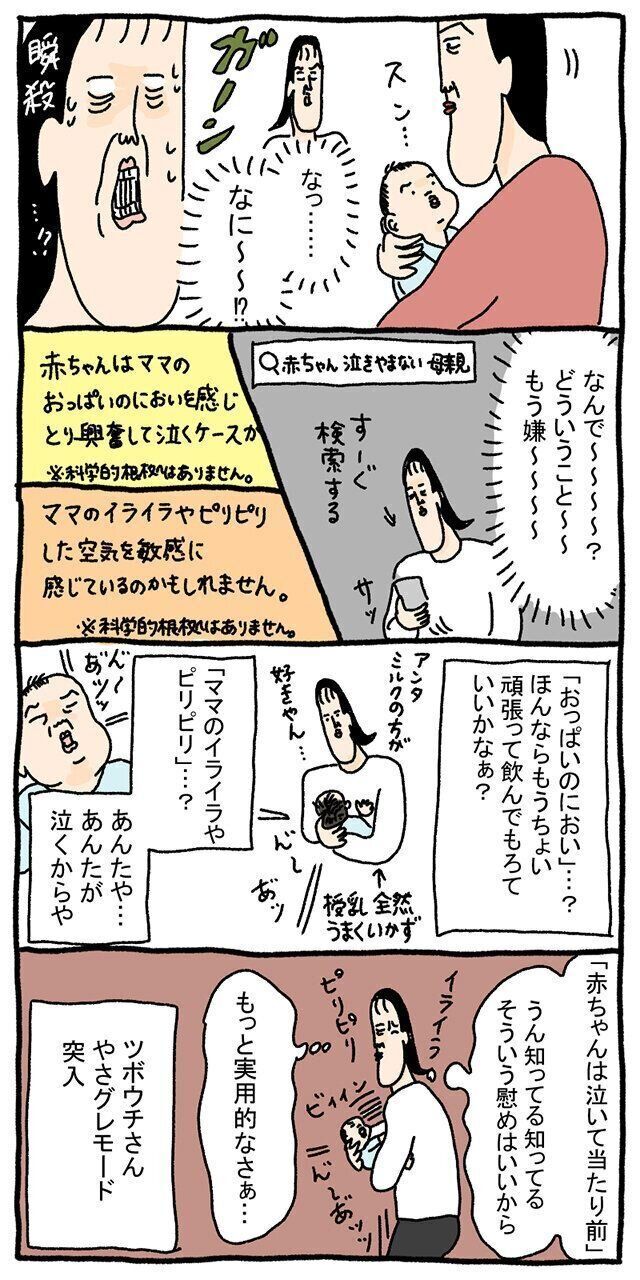 スン…
ガーン
なっ……
なに〜〜⁉
瞬殺
…⁉
なんで〜〜〜〜?
どういうこと〜〜
もう嫌〜〜〜〜
赤ちゃん 泣きやまない 母親
すーぐ
検索する
サッ
赤ちゃんはママの
おっぱいのにおいを感じ
とり興奮して泣くケースが
※科学的根拠はありません。
ママのイライラやピリピリ
した空気を敏感に
感じているのかもしれません。
※科学的根拠はありません。
「おっぱいのにおい」…?
ほんならもうちょい
頑張って飲んでもろて
いいかなぁ?
アンタ
ミルクの方が
好きやん…
授乳 全然
うまくいかず
んぎー
あッ
「ママのイライラや
ピリピリ」…?
んぎー
あッッ
あんたや…
あんたが
泣くからや
「赤ちゃんは泣いて当たり前」
うん知ってる知ってる
そういう慰めはいいから
イライラ
ピリピリ
ビィィン
んぎー
あッッ
もっと実用的なさぁ…
ツボウチさん
やさグレモード
突入